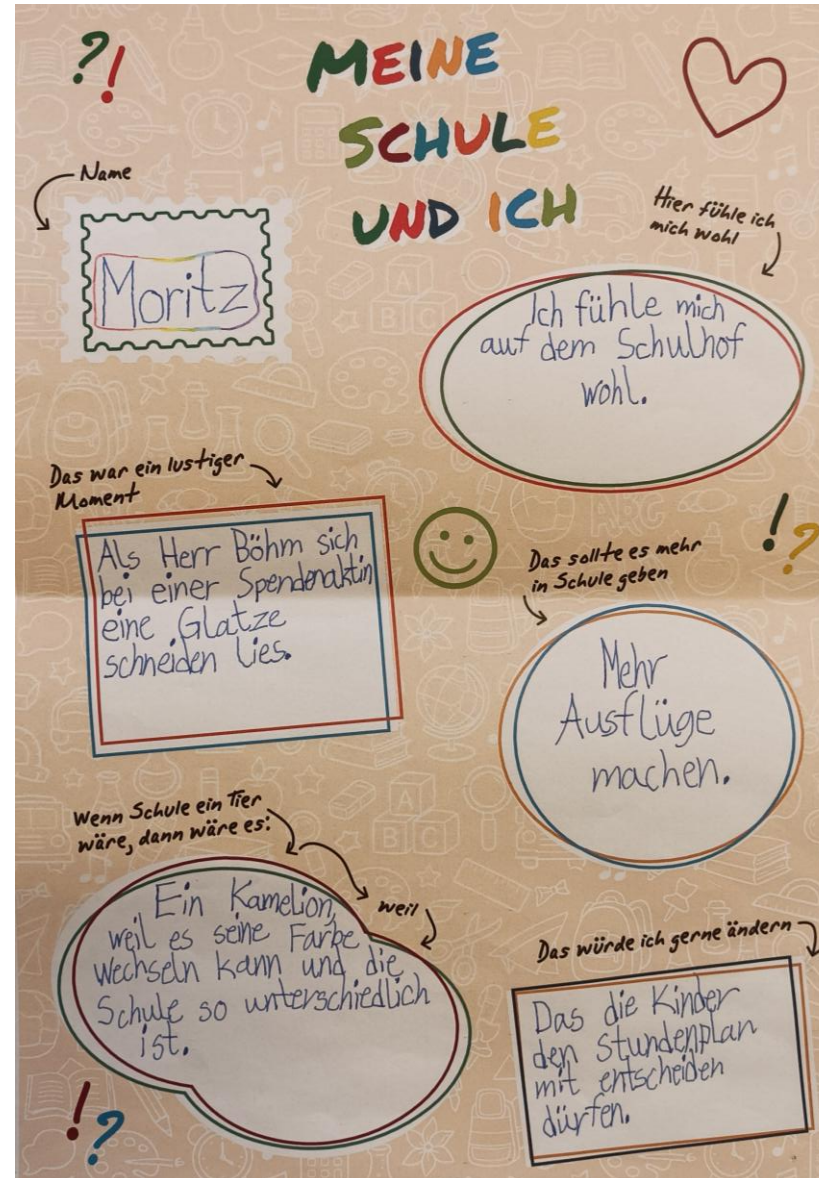 ?!
MEINE
SCHULE
UND ICH
Name
Moritz
Hier fühle ich
mich wohl
Ich fühle mich
auf dem Schulhof
wohl.
Das war ein lustiger
Moment
Als Herr Böhm sich
bei einer Spendenaktin
eine Glatze
schneiden lies.
!?
Das sollte es mehr
in Schule geben
Mehr
Ausflüge
machen.
Wenn Schule ein Tier
wäre, dann wäre es:
weil
Ein Kamelion,
weil es seine Farbe
wechseln kann und die
Schule so unterschiedlich
ist.
Das würde ich gerne ändern
Das die Kinder
den Stundenplan
mit entscheiden
dürfen.
!?